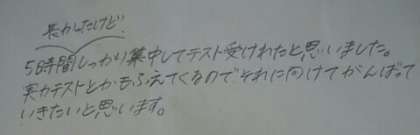 長かったけど
5時間しっかり集中してテスト受けれたと思いました。
実力テストとかもふえてくるのでそれに向けてがんばって
いきたいと思います。